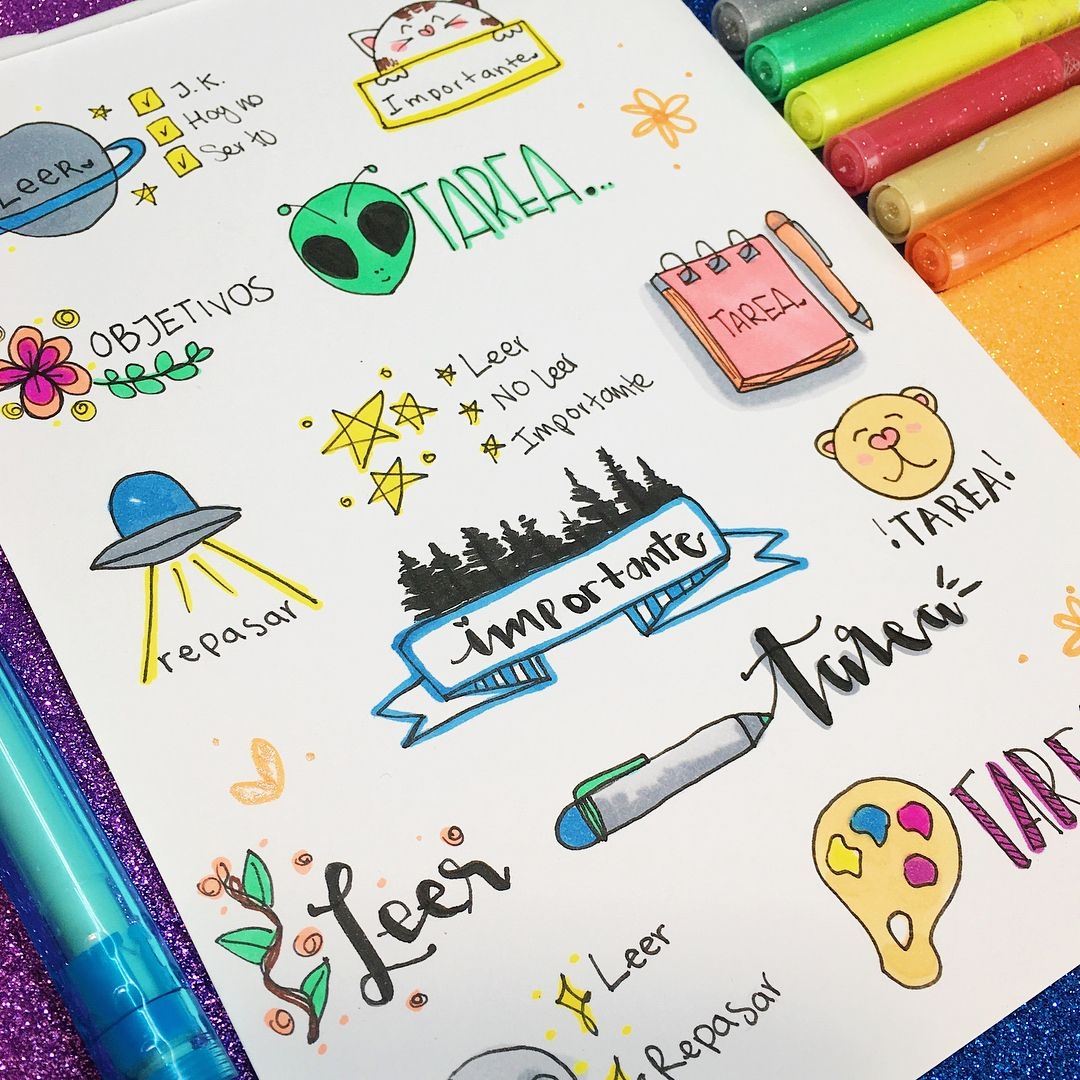 Importante
J.K.
Hoy no
Ser tú
LEER
TAREA...
OBJETIVOS
TAREA
Leer
NO leer
Importante
¡TAREA!
repasar
importante
tarea
TARE
Leer
Leer
Repasar